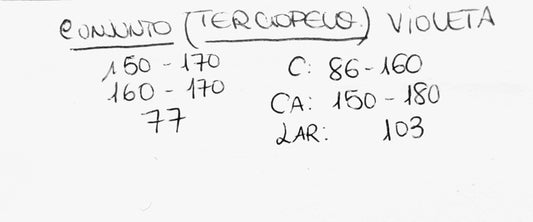 CONJUNTO (TERCIOPELO.) VIOLETA
150 - 170 C: 86-160
160 - 170 CA: 150 - 180
77 LAR: 103